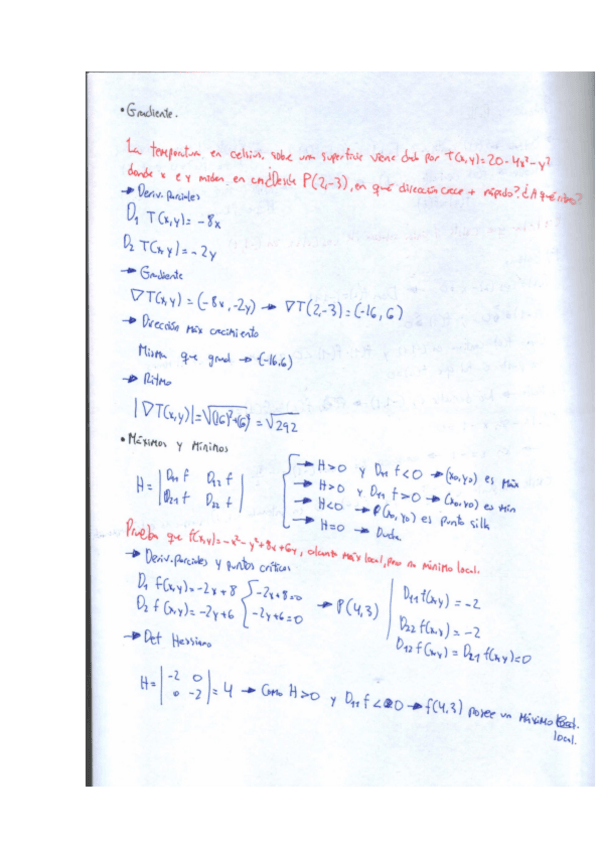 • Gradiente.
La temperatura en celsius, sobre una superficie viene dada por T(x,y)=20-4x²-y²
donde x e y miden en cm ¿Desde P(2,-3), en qué dirección crece + rápido? ¿A qué ritmo?
→ Deriv. parciales
D₁ T(x,y)= -8x
D₂ T(x,y)= -2y
→ Gradiente
▽T(x,y) = (-8x,-2y) → ▽T(2,-3) = (-16,6)
→ Dirección máx crecimiento
Misma que grad → (-16,6)
→ Ritmo
|▽T(x,y)| = √(16)²+(6)² = √292
• Máximos y Mínimos
H = | D₁₁ f D₁₂ f |
| D₂₁ f D₂₂ f |
→ H>0 y D₁₁ f<0 → (x₀,y₀) es Máx
→ H>0 y D₁₁ f>0 → (x₀,y₀) es Min
→ H<0 → P(x₀,y₀) es punto silla
→ H=0 → Duda
Prueba que f(x,y)=-x²-y²+8x+6y, alcanza máx local, pero no mínimo local.
→ Deriv. parciales y puntos críticos
D₁ f(x,y)=-2x+8 { -2x+8=0
D₂ f(x,y)=-2y+6 { -2y+6=0
→ P(4,3)
D₁₁ f(x,y) = -2
D₂₂ f(x,y) = -2
D₁₂ f(x,y) = D₂₁ f(x,y)=0
→ Det Hessiano
H = | -2 0 |
| 0 -2 | = 4 → Como H>0 y D₁₁ f<0 → f(4,3) posee un Máximo
local.